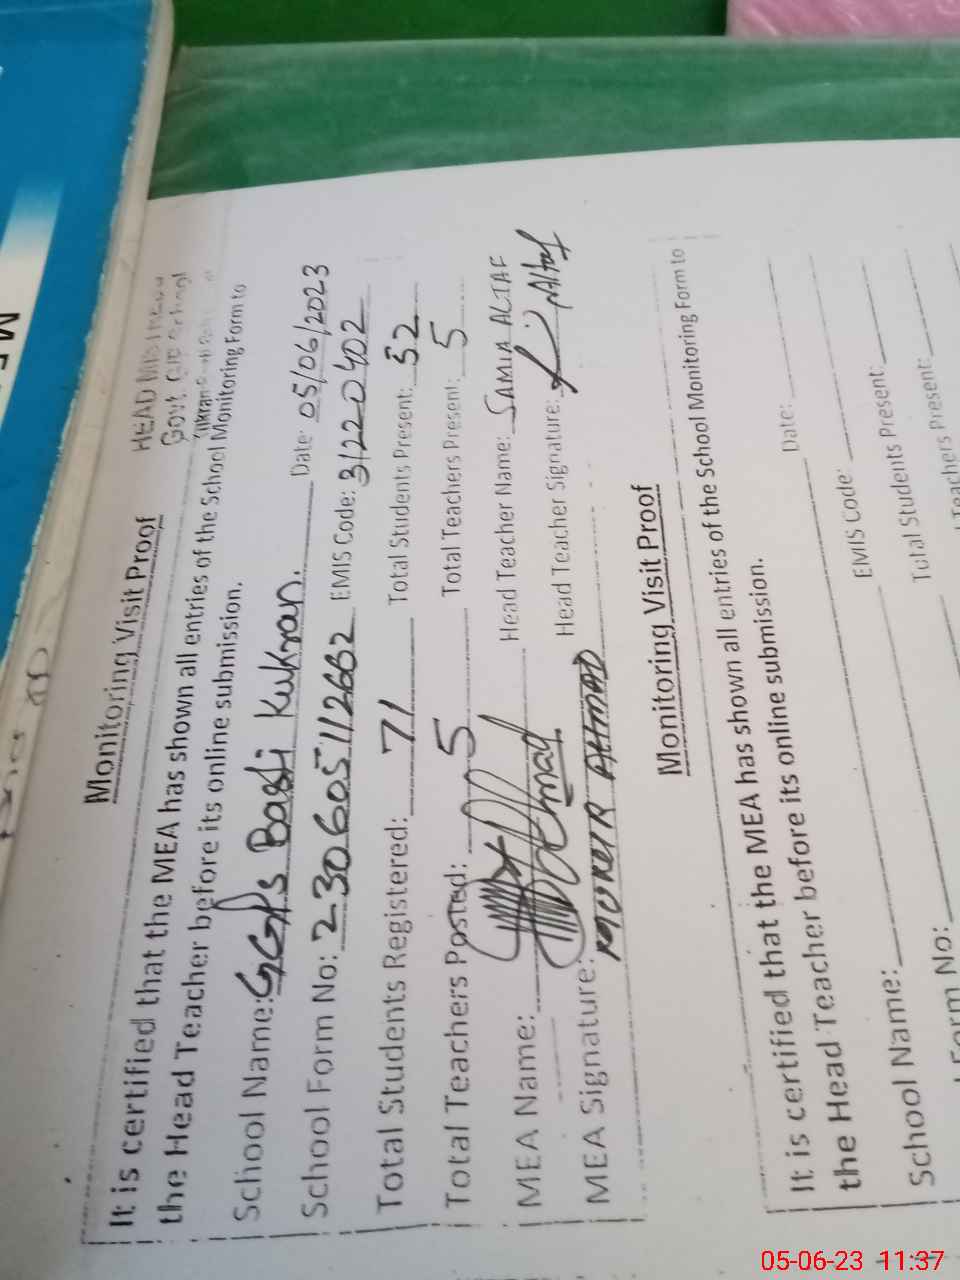 Monitoring Visit Proof
HEAD MISTRESS
Govt. School
It is certified that the MEA has shown all entries of the School Monitoring Form to
the Head Teacher before its online submission.
School Name: GGPS Basti Kukran. Date: 05/06/2023
School Form No: 230605112662 EMIS Code: 31220402
Total Students Registered: 71 Total Students Present: 52
Total Teachers Posted: 5 Total Teachers Present: 5
MEA Name: Head Teacher Name: SAMIA ALTAF
MEA Signature: AHMAD Head Teacher Signature: Altaf
Monitoring Visit Proof
It is certified that the MEA has shown all entries of the School Monitoring Form to
the Head Teacher before its online submission.
School Name: Date:
Form No: EMIS Code:
Total Students Present:
Teachers Present:
05-06-23 11:37